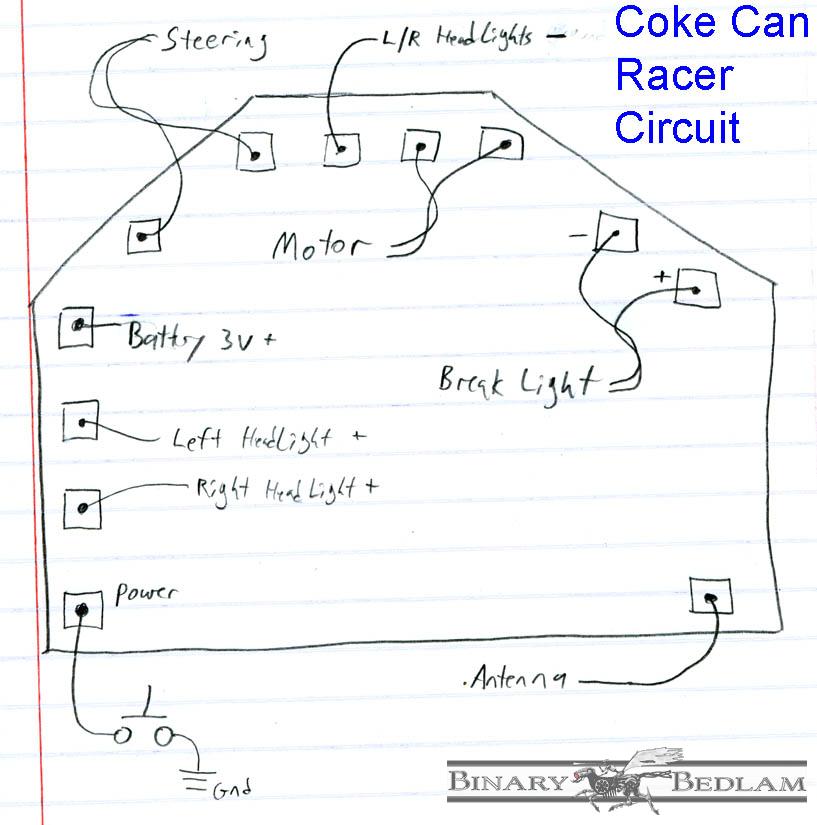 Coke Can
Racer
Circuit
Steering
L/R HeadLights -
Motor
-
+
Battry 3V +
Break Light
Left HeadLight +
Right HeadLight +
Power
Antenna
Gnd
BINARY BEDLAM